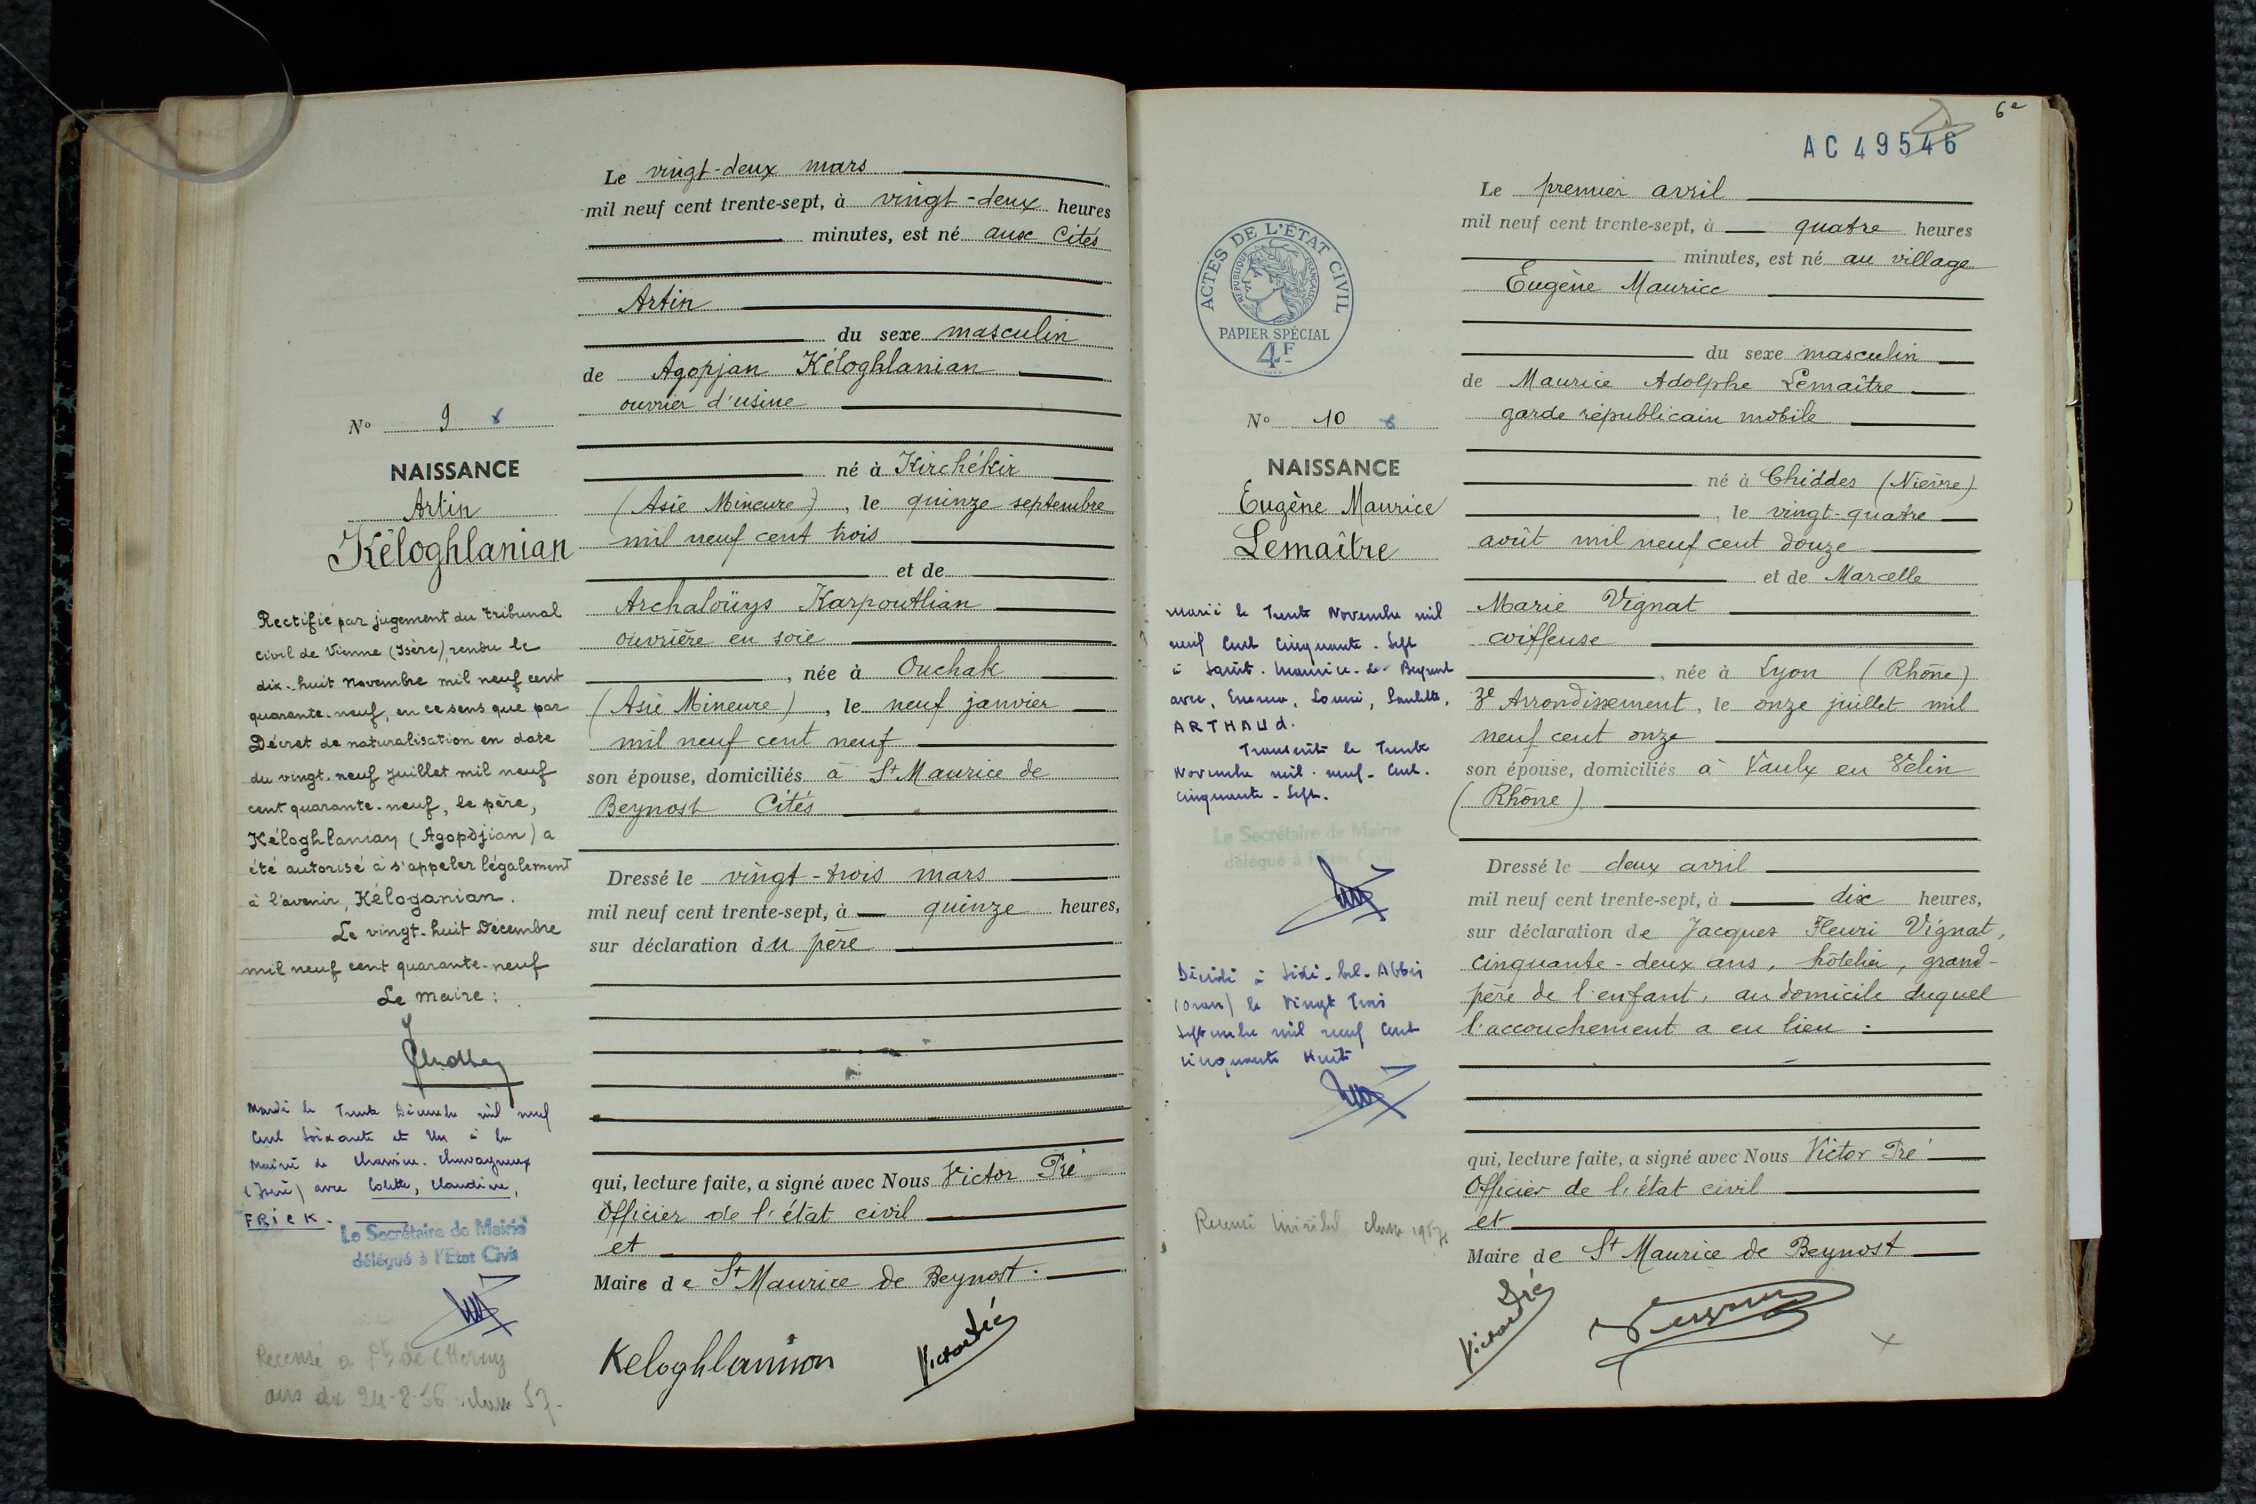 Le vingt-deux mars
mil neuf cent trente-sept, à vingt-deux heures
minutes, est né aux Cités
Artin
du sexe masculin
de Agopjan Kéloghlanian
ouvrier d'usine
né à Kirchékir
(Asie Mineure), le quinze septembre
mil neuf cent trois
et de
Archaloüys Karpouthian
ouvrière en soie
, née à Ouchak
(Asie Mineure), le neuf janvier
mil neuf cent neuf
son épouse, domiciliés à St Maurice de
Beynost Cités
Dressé le vingt-trois mars
mil neuf cent trente-sept, à quinze heures,
sur déclaration du père
qui, lecture faite, a signé avec Nous Victor Pré
Officier de l'état civil
et
Maire de St Maurice de Beynost.
Keloghlanian
Victor Pré
No 9
NAISSANCE
Artin
Kéloghlanian
Rectifié par jugement du tribunal
civil de Vienne (Isère), rendu le
dix-huit Novembre mil neuf cent
quarante-neuf, en ce sens que par
Décret de naturalisation en date
du vingt-neuf juillet mil neuf
cent quarante-neuf, le père,
Kéloghlanian (Agopdjian) a
été autorisé à s'appeler légalement
à l'avenir, Kéloganian.
Le vingt-huit Décembre
mil neuf cent quarante-neuf
Le Maire :
Marié le Trente Décembre mil neuf
Cent Soixante et Un à la
Mairie de Charvieu-Chavagneux
(Isère) avec Colette, Claudine,
FRICK.
Le Secrétaire de Mairie
délégué à l'Etat Civil
Recensé a Pt de Cheruy
avis du 24-8-56 classe 57.
6e
AC 49546
ACTES DE L'ÉTAT CIVIL
RÉPUBLIQUE FRANÇAISE
PAPIER SPÉCIAL
4F
Le premier avril
mil neuf cent trente-sept, à quatre heures
minutes, est né au village
Eugène Maurice
du sexe masculin
de Maurice Adolphe Lemaître
garde républicain mobile
né à Chiddes (Nièvre)
, le vingt-quatre
août mil neuf cent douze
et de Marcelle
Marie Vignat
coiffeuse
, née à Lyon (Rhône)
3e Arrondissement, le onze juillet mil
neuf cent onze
son épouse, domiciliés à Vaulx en Velin
(Rhône)
Dressé le deux avril
mil neuf cent trente-sept, à dix heures,
sur déclaration de Jacques Fleuri Vignat,
cinquante-deux ans, hôtelier, grand-
père de l'enfant, au domicile duquel
l'accouchement a eu lieu.
qui, lecture faite, a signé avec Nous Victor Pré
Officier de l'état civil
et
Maire de St Maurice de Beynost
Victor Pré
No 10
NAISSANCE
Eugène Maurice
Lemaître
Marié le Trente Novembre mil
neuf Cent Cinquante-Sept
à Saint-Maurice-de-Beynost
avec, Emma, Louise, Paulette,
ARTHAUD.
Transcrit le Trente
Novembre mil-neuf-Cent-
Cinquante-Sept.
Le Secrétaire de Mairie
délégué à l'Etat Civil
Décédé à Sidi-bel-Abbès
(Oran) le Vingt Trois
Septembre mil neuf Cent
Cinquante Huit
Recensé Miribel classe 1957